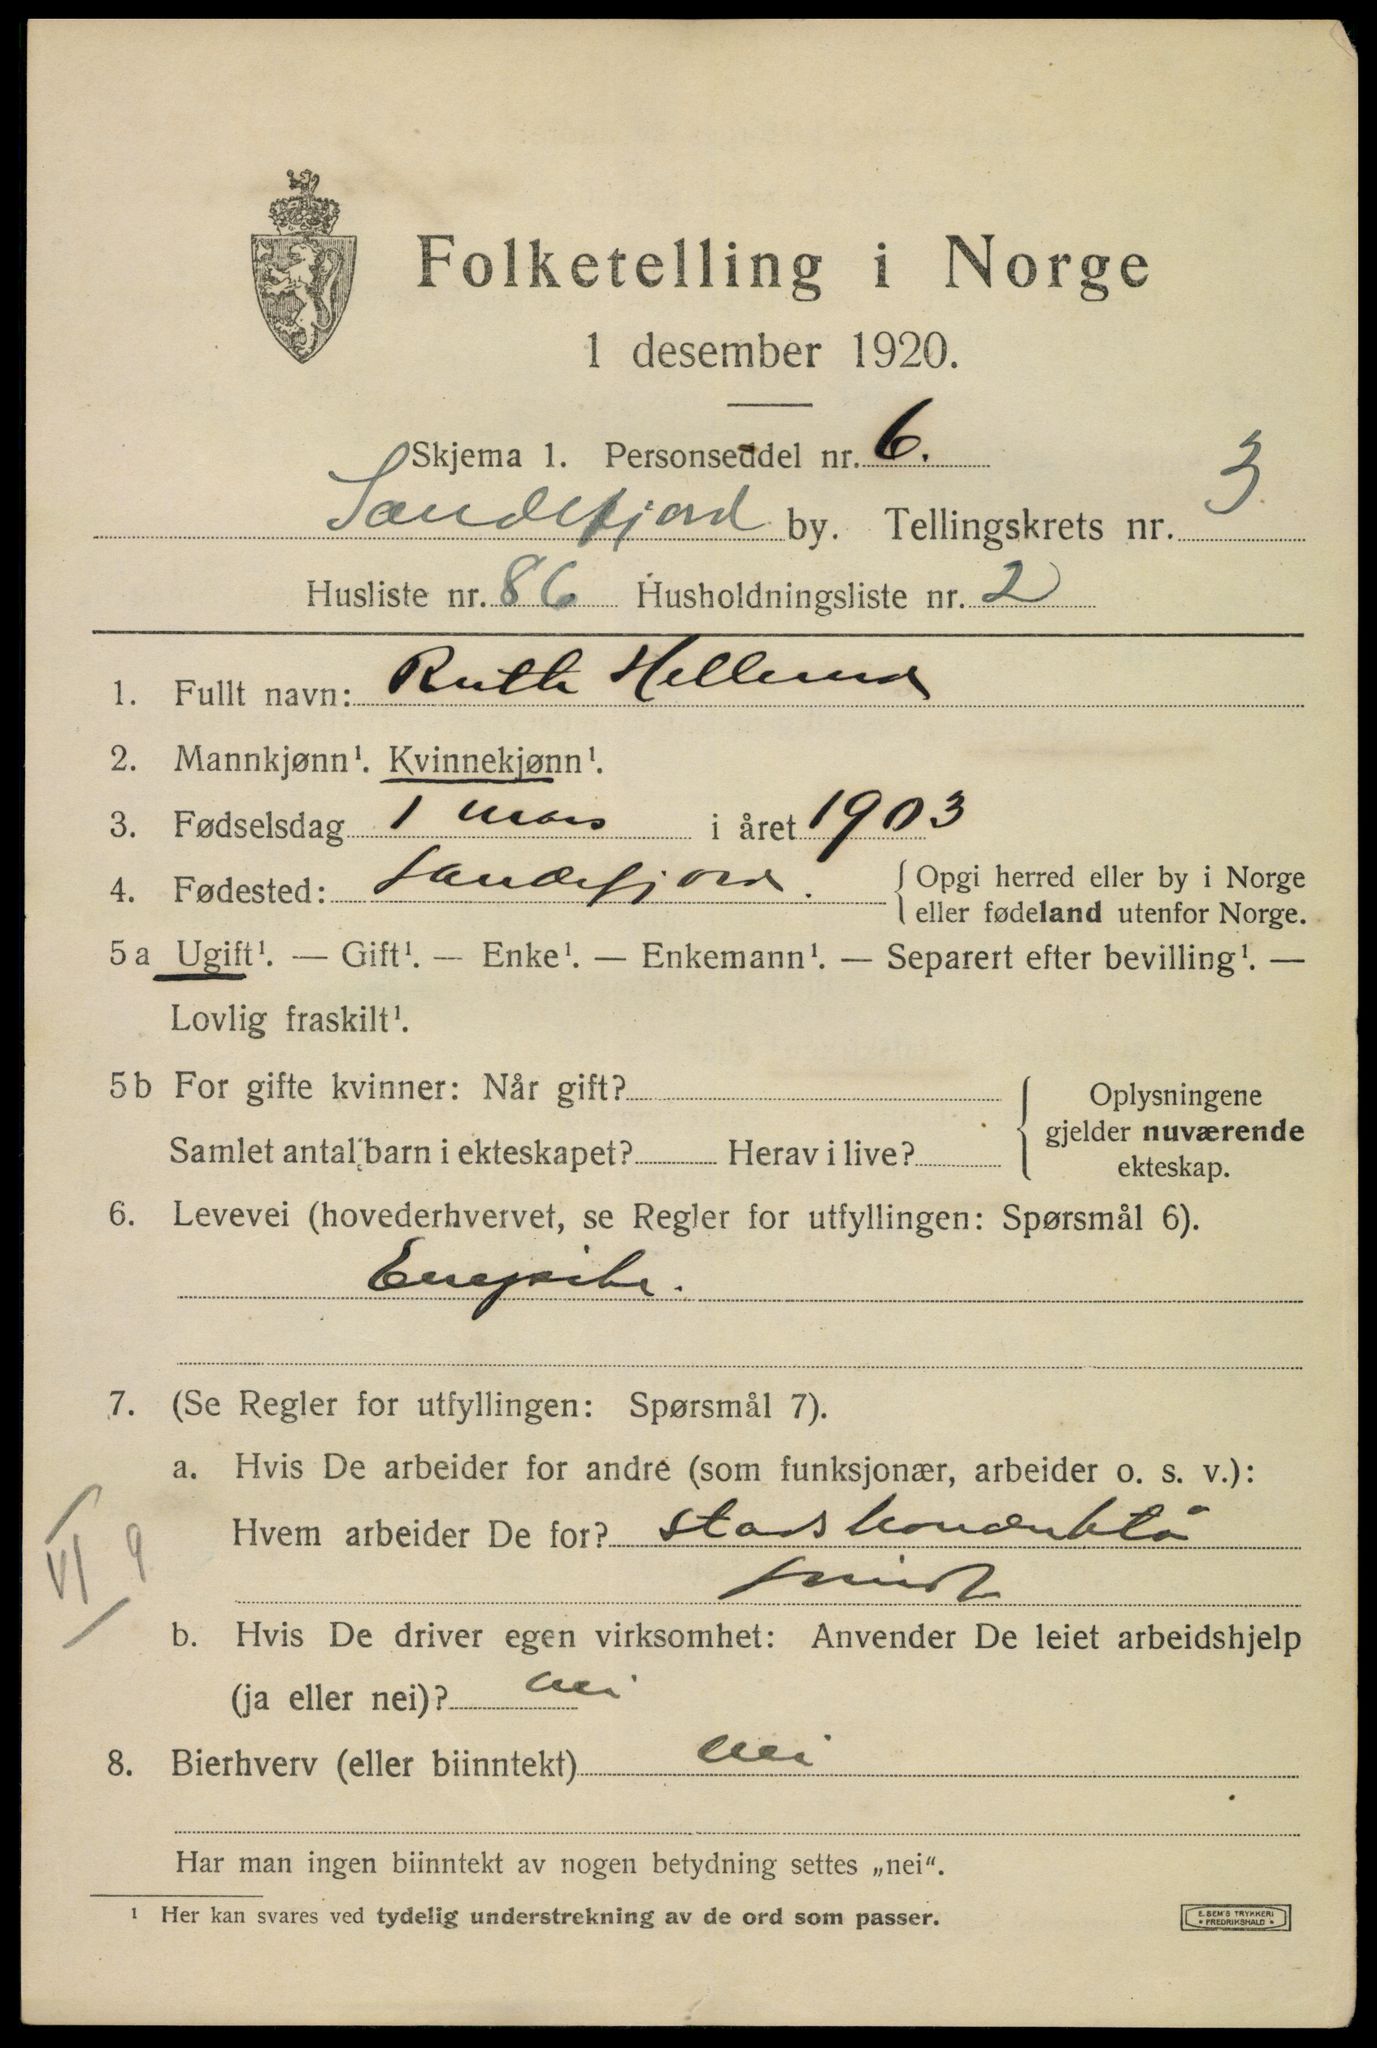 Folketelling i Norge
1 desember 1920.
Skjema 1. Personseddel nr. 6.
Sandefjord by. Tellingskrets nr. 3
Husliste nr. 86 Husholdningsliste nr. 2
1. Fullt navn: Ruth Hellund
2. Mannkjønn¹. Kvinnekjønn¹.
3. Fødselsdag 1 mars i året 1903
4. Fødested: Sandefjord. { Opgi herred eller by i Norge
eller fødeland utenfor Norge.
5a Ugift¹. — Gift¹. — Enke¹. — Enkemann¹. — Separert efter bevilling¹. —
Lovlig fraskilt¹.
5b For gifte kvinner: Når gift? { Oplysningene
gjelder nuværende
ekteskap.
Samlet antal barn i ekteskapet? Herav i live?
6. Levevei (hovederhvervet, se Regler for utfyllingen: Spørsmål 6).
7. (Se Regler for utfyllingen: Spørsmål 7).
a. Hvis De arbeider for andre (som funksjonær, arbeider o. s. v.):
Hvem arbeider De for? stadskonduktø
VI 9
b. Hvis De driver egen virksomhet: Anvender De leiet arbeidshjelp
(ja eller nei)? nei
8. Bierhverv (eller biinntekt) nei
Har man ingen biinntekt av nogen betydning settes „nei“.
¹ Her kan svares ved tydelig understrekning av de ord som passer.
E. SEM'S TRYKKERI
* FREDRIKSHALD *